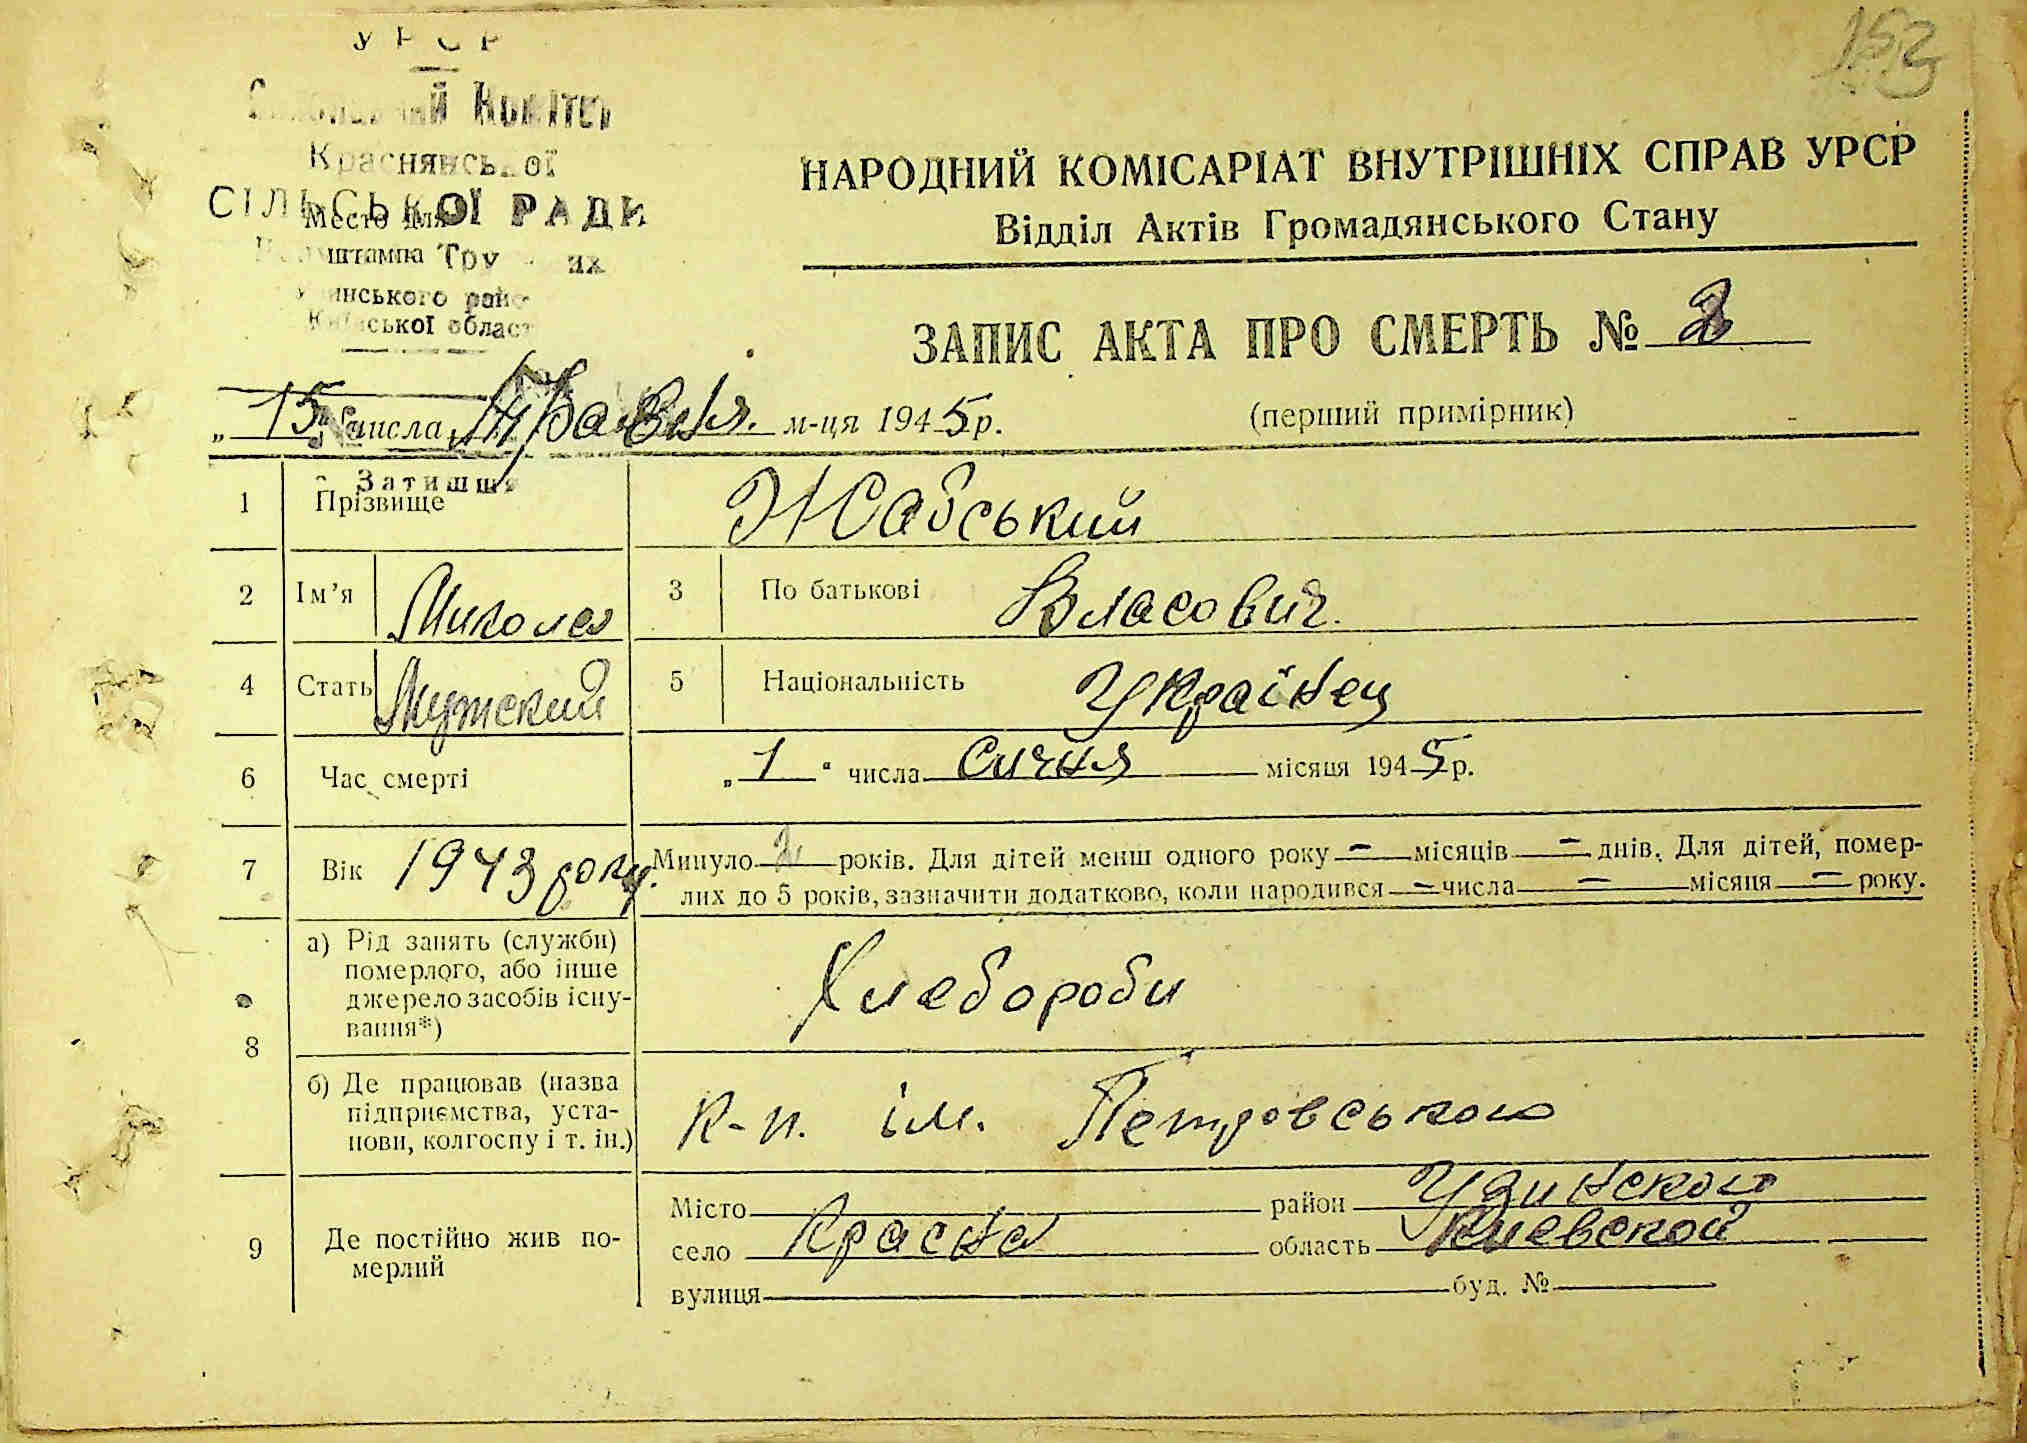 153
УРСР
Виконавчий Комітет
Краснянської
СІЛЬСЬКОЇ РАДИ
Место для
штампа Тру их
инського райо
Київської област
НАРОДНИЙ КОМІСАРІАТ ВНУТРІШНІХ СПРАВ УРСР
Відділ Актів Громадянського Стану
ЗАПИС АКТА ПРО СМЕРТЬ № 2
(перший примірник)
„ 15 " числа Травня. м-ця 1945 р.
Затишшя
1 Прізвище Жабський
2 Ім’я Микола 3 По батькові Власович.
4 Стать Мужский 5 Національність Українец
6 Час смерті „ 1 " числа Сичня місяця 1945 р.
7 Вік 1943 году. Минуло 2 років. Для дітей менш одного року — місяців — днів. Для дітей, помер-
лих до 5 років, зазначити додатково, коли народився — числа — місяця — року.
8 а) Рід занять (служби)
померлого, або інше
джерело засобів існу-
вання*)
Хлебороби
б) Де працював (назва
підприємства, уста-
нови, колгоспу і т. ін.)
К-п. ім. Петровського
9 Де постійно жив по-
мерлий
Місто район Узинского
село Красна область Киевской
вулиця буд. №